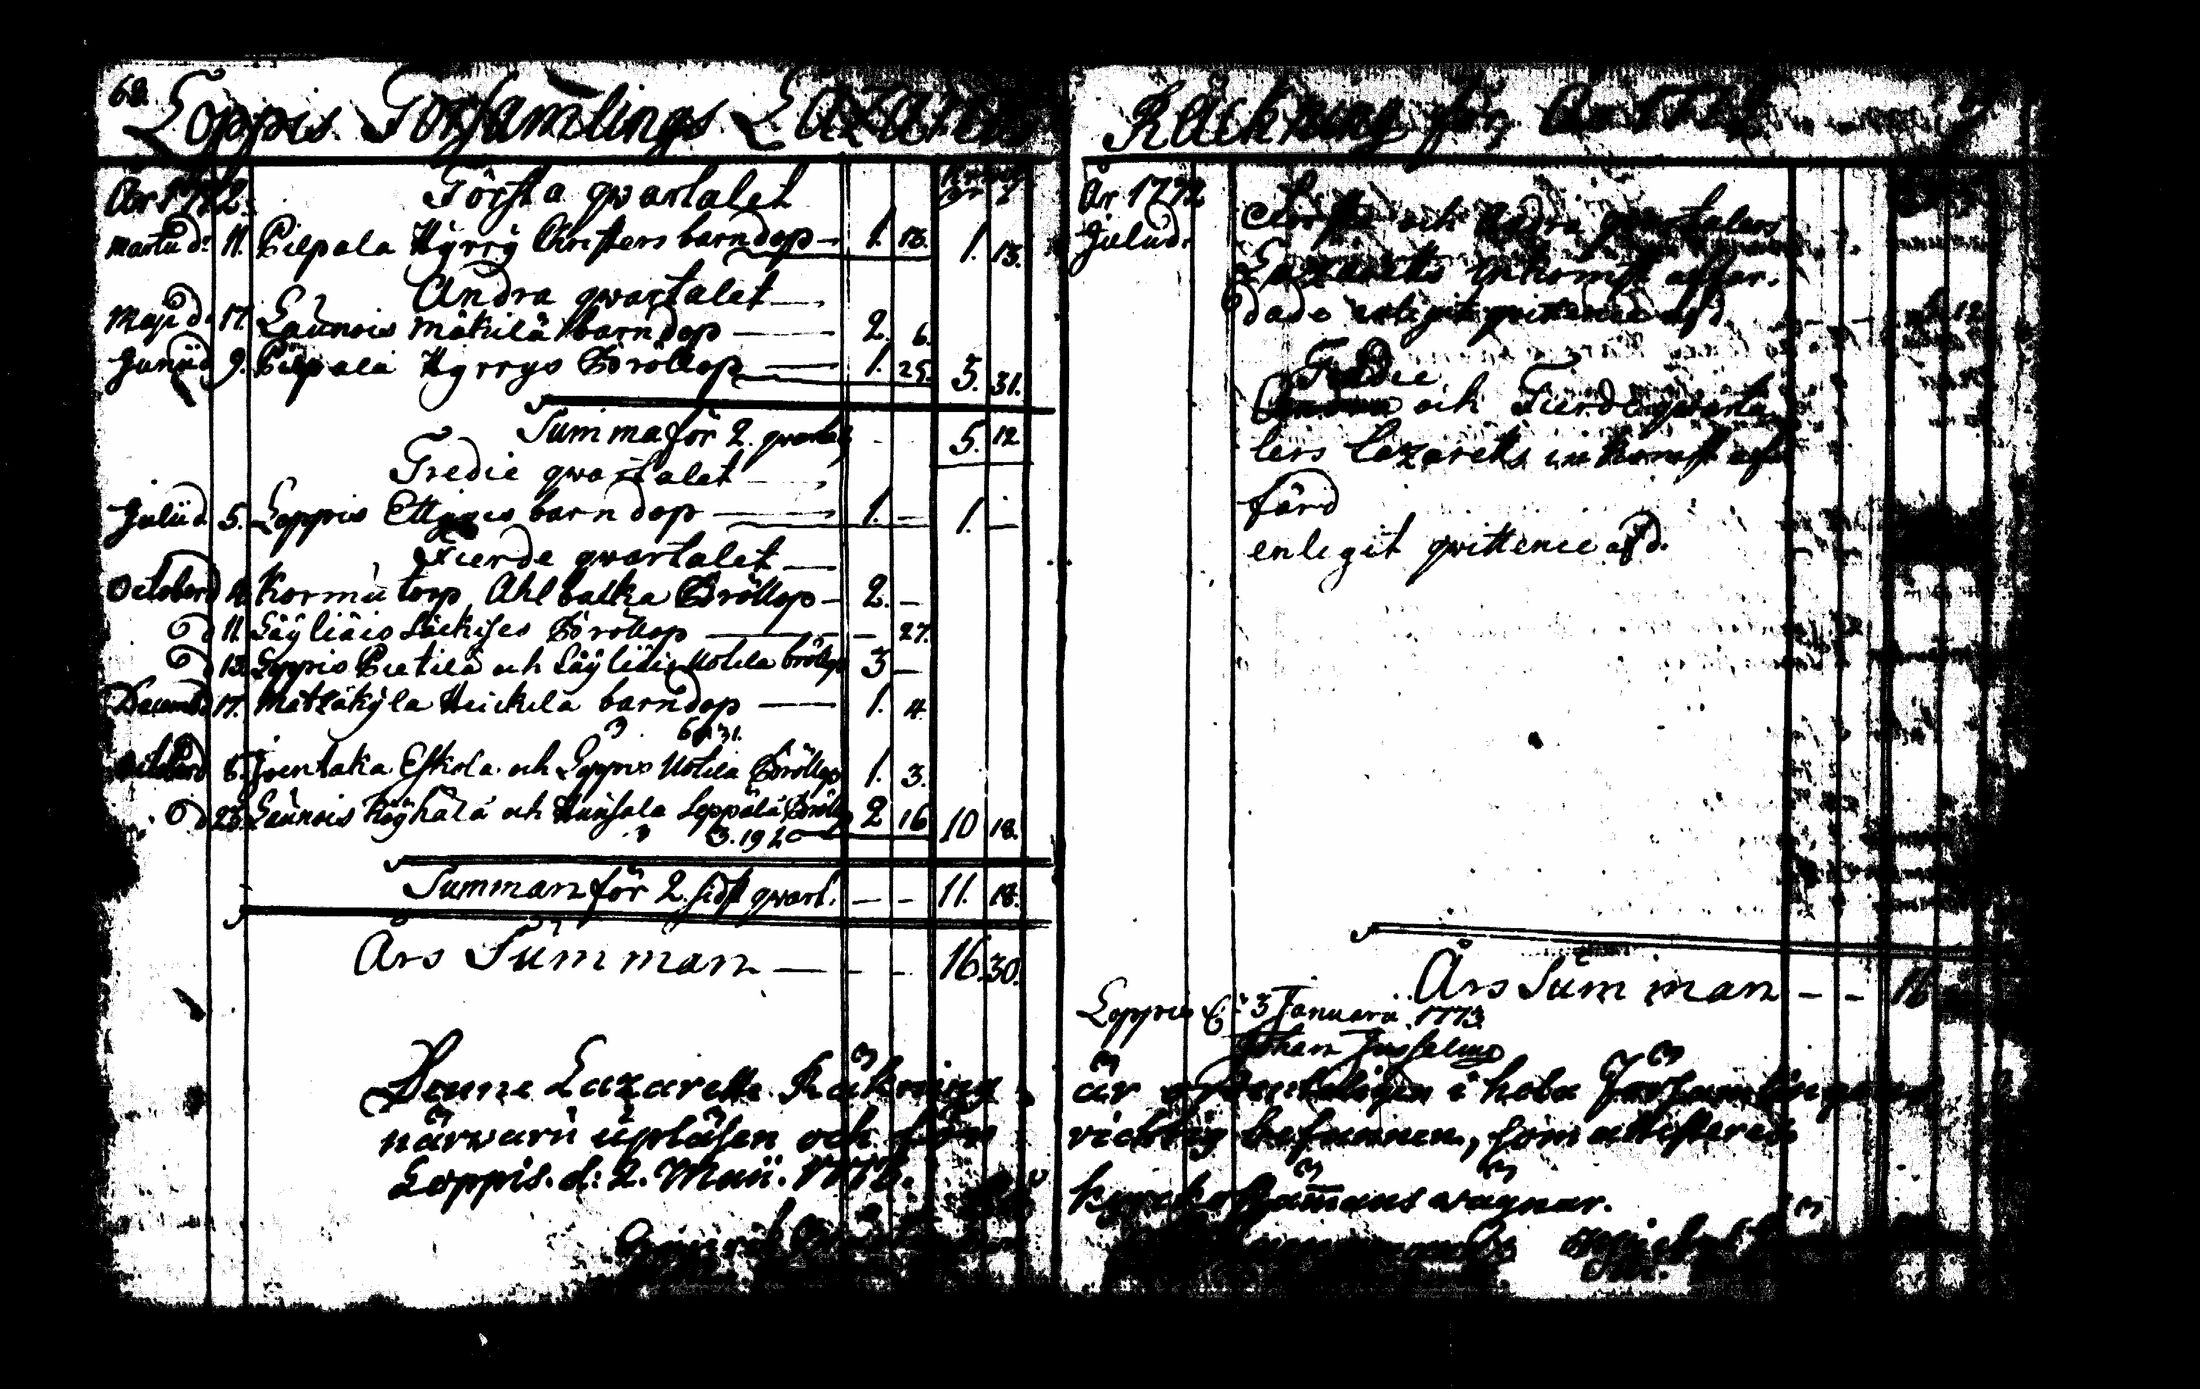 68.
Loppis Församlings Lazaretts
År 1772. Första qwartalet
Martii d: 11. Pilpala Hyrry Christers barndop 1. 13. 1. 13.
Andra qwartalet
Maji d. 17. Launois Mäkilä barndop 2. 6.
Junii d 9. Pilpala Hyrrys Bröllop 1. 25. 3. 31.
Summa för 2. qwartal 5. 12
Tredie qwartalet
Julii d. 5. Loppis barndop 1. – 1. –
Fierde qwartalet
October d Kormu torp Ahlbacka Bröllop 2. –
d 11. Säyliäis Bröllop – 27.
d 13. Loppis Pietilä och Säyliäis Uotila bröllop 3 –
Decemb d 17. Matzäkylä Heickilä barndop 1. 4
6. 31.
October d 8. Joentaka Eskola och Loppis Uotila Bröllop 1. 3.
d 23. Launois Köyhälä och Hunsala Leppälä Bröllop 2 16 10 18.
3. 19
Summan för 2. sidst qwart. – – 11. 18.
Års Summan – – – 16. 30.
Denne Lazaretts Räkning
närwaru upläsen och
Loppis. d: 2. Maii. 1773.
Räckning för År 1772
År 1772
Julii d. Första och Andra qwartalers
Lazaretts inkomst affär-
dade enligit qvittence af d. 5. 12
Tredie
och Fierde qwarta
lers Lazaretts inkomst af
färd
enligit qwittence af d.
Års Summan – – 16
Loppis 3 Januarii 1773
Johan
är offenteligen i hela Församlingens
richtig befunnen, som attesteras
kyrckostämans wägnar.